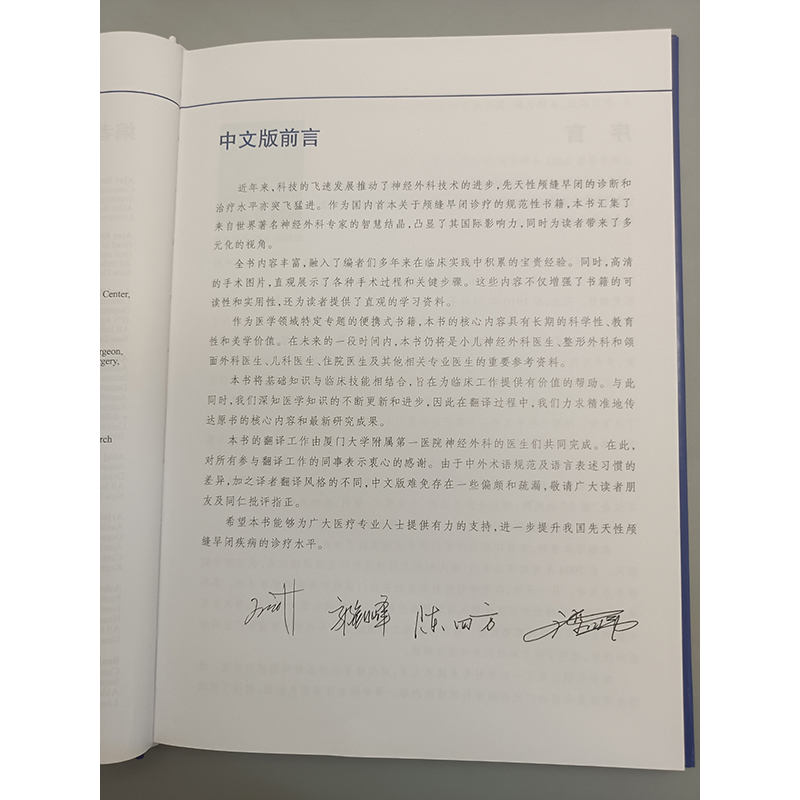 Center,
urgeon,
rgery,
arch
中文版前言
近年来,科技的飞速发展推动了神经外科技术的进步,先天性颅缝早闭的诊断和
治疗水平亦突飞猛进。作为国内首本关于颅缝早闭诊疗的规范性书籍,本书汇集了
来自世界著名神经外科专家的智慧结晶,凸显了其国际影响力,同时为读者带来了多
元化的视角。
全书内容丰富,融入了编者们多年来在临床实践中积累的宝贵经验。同时,高清
的手术图片,直观展示了各种手术过程和关键步骤。这些内容不仅增强了书籍的可
读性和实用性,还为读者提供了直观的学习资料。
作为医学领域特定专题的便携式书籍,本书的核心内容具有长期的科学性、教育
性和美学价值。在未来的一段时间内,本书仍将是小儿神经外科医生、整形外科和颌
面外科医生、儿科医生、住院医生及其他相关专业医生的重要参考资料。
本书将基础知识与临床技能相结合,旨在为临床工作提供有价值的帮助。与此
同时,我们深知医学知识的不断更新和进步,因此在翻译过程中,我们力求精准地传
达原书的核心内容和最新研究成果。
本书的翻译工作由厦门大学附属第一医院神经外科的医生们共同完成。在此,
对所有参与翻译工作的同事表示衷心的感谢。由于中外术语规范及语言表述习惯的
差异,加之译者翻译风格的不同,中文版难免存在一些偏颇和疏漏,敬请广大读者朋
友及同仁批评指正。
希望本书能够为广大医疗专业人士提供有力的支持,进一步提升我国先天性颅
缝早闭疾病的诊疗水平。
陈四方